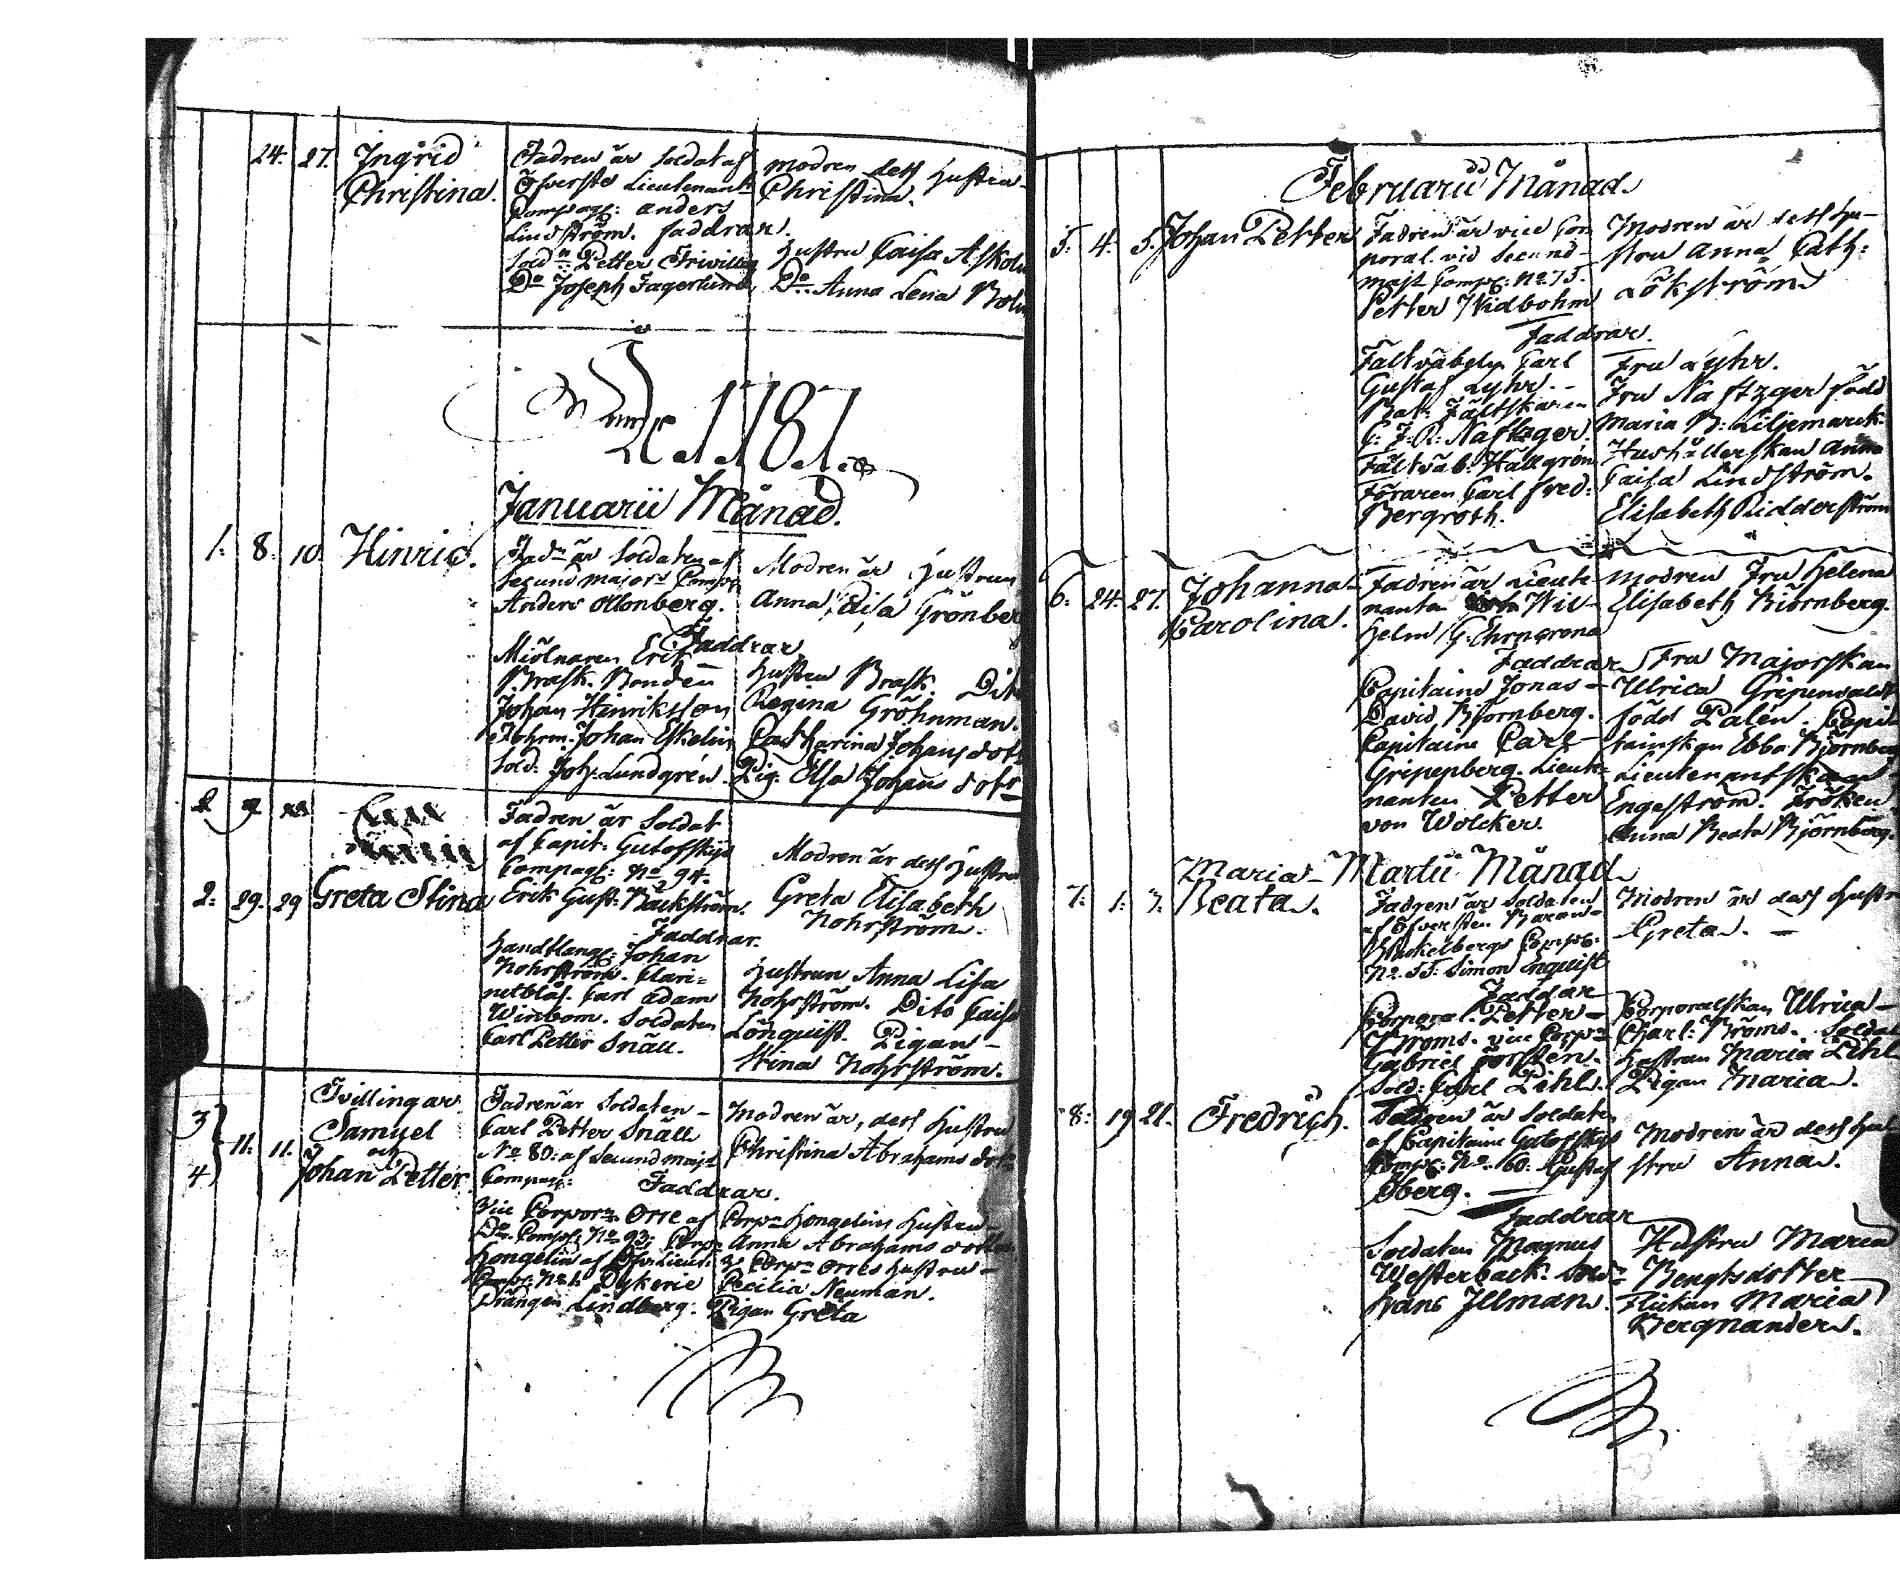 24. 27. Ingrid
Christina.
Fadren är Soldat af
Öfverste Lieutenants
Compag: Anders
Lindström. Faddrar.
Sold:n Petter Friwillig
D:o Joseph Fagerlund,
Modren dess Hustru
Christina.
Hustru Caisa Askolin
D:o Anna Lena Bolin
1787.
Januarii Månad.
1. 8. 10. Hinric.
Fad:n är Soldaten af
Secund majors Comp:
Anders Ollonberg.
Modren är Hustrun
Anna Caisa Grönber
Faddrar
Miölnaren Erik
Brask. Bonden
Johan Hinriksson
Johan Eskelin
Sold: Joh: Lundgrén.
Hustru Brask. Dito
Regina Gröhnman.
Catharina Johans dott
Pig: Elsa Johans dot:r
2 9
2. 29. 29 Greta Stina
Fadren är Soldat
af Capit: Gutoffskys
Compag: N:o 94.
Erik Gust: Bäckström.
Modren är dess Hustru
Greta Elisabeth
Nohrström.
Faddrar.
Handtlang: Johan
Nohrström. Clari=
netblås. Carl Adam
Winbom. Soldaten
Carl Petter Snäll.
Hustrun Anna Lisa
Nohrström. Dito Caisa
Lönquist. Pigan
Stina Nohrström.
3 4 11. 11. Tvillingar
Samuel
och
Johan Petter
Fadren är Soldaten
Carl Petter Snäll
N:o 80: af Secund maj:s
Compag:
Modren är, dess Hustru
Christina Abrahams dot:r
Faddrar.
Vice Corpor:n Orre af
D:o Comp: N:o 93: Corp:
Hongelin af Öfv:Lieut:
Comp: N:o 1. Dykerie
Drängen Lindberg.
Corp:n Hongelins Hustru
Anna Abrahams dotter
Corp:n Orres Hustru
Cecilia Neuman.
Pigan Greta
Februarii Månad
5. 4. 5. Johan Petter
Fadren är vice Cor
poral vid Secund
majs Comp: N:o 75.
Petter Widbohm
Modren är dess Hu-
stru Anna Cath:
Lökström
Faddrar.
Fältväbeln Carl
Gustaf Lyhr.
Bat: Fältskären
C: F: R: Naftzger.
Fältväb: Hällgren
Föraren Carl Fred:
Bergroth.
Fru Lyhr.
Fru Naftzger född
Maria B: Liljemarck.
Hushållerskan Anna
Caisa Lindström.
Elisabeth Ridderström
6. 24. 27. Johanna
Carolina.
Fadren är Lieute
nanten Wil-
helm G: Ehrnrona
Modren Fru Helena
Elisabeth Biörnberg.
Faddrar
Capitaine Jonas
David Björnberg.
Capitaine Carl
Gripenberg. Lieute=
nanten Petter
von Wolcker.
Fru Majorskan
Ulrica Gripenwaldt
född Palén. Capi
tainskan Ebba Björnberg
Lieutenantskan
Engeström. Fröken
Anna Beata Björnberg.
Martii Månad
7. 1. 3. Maria
Beata.
Fadren är Soldaten
af Öfversten Baron
Stackelbergs Comp:
N:o 55: Simon Enquist
Modren är dess Hustru
Greta.
Faddrar
Corporal: Petter
Broms. vice Corp:n
Gabriel Forstén.
Sold: Carl Pihl.
Corporalskan Ulrica
Charl: Broms. Soldat
hustrun Maria Pihl
Pigan Maria.
8. 19 21. Fredrich.
Fadren är Soldaten
af Capitaine Gutoffskys
Comp: N:o 60: Gustaf
Öberg.
Modren är dess Hu
stru Anna.
Faddrar
Soldaten Magnus
Westerback. Sold:n
Hans Illman.
Hustru Maria
Bengtsdotter
Flickan Maria
Bergnanders.